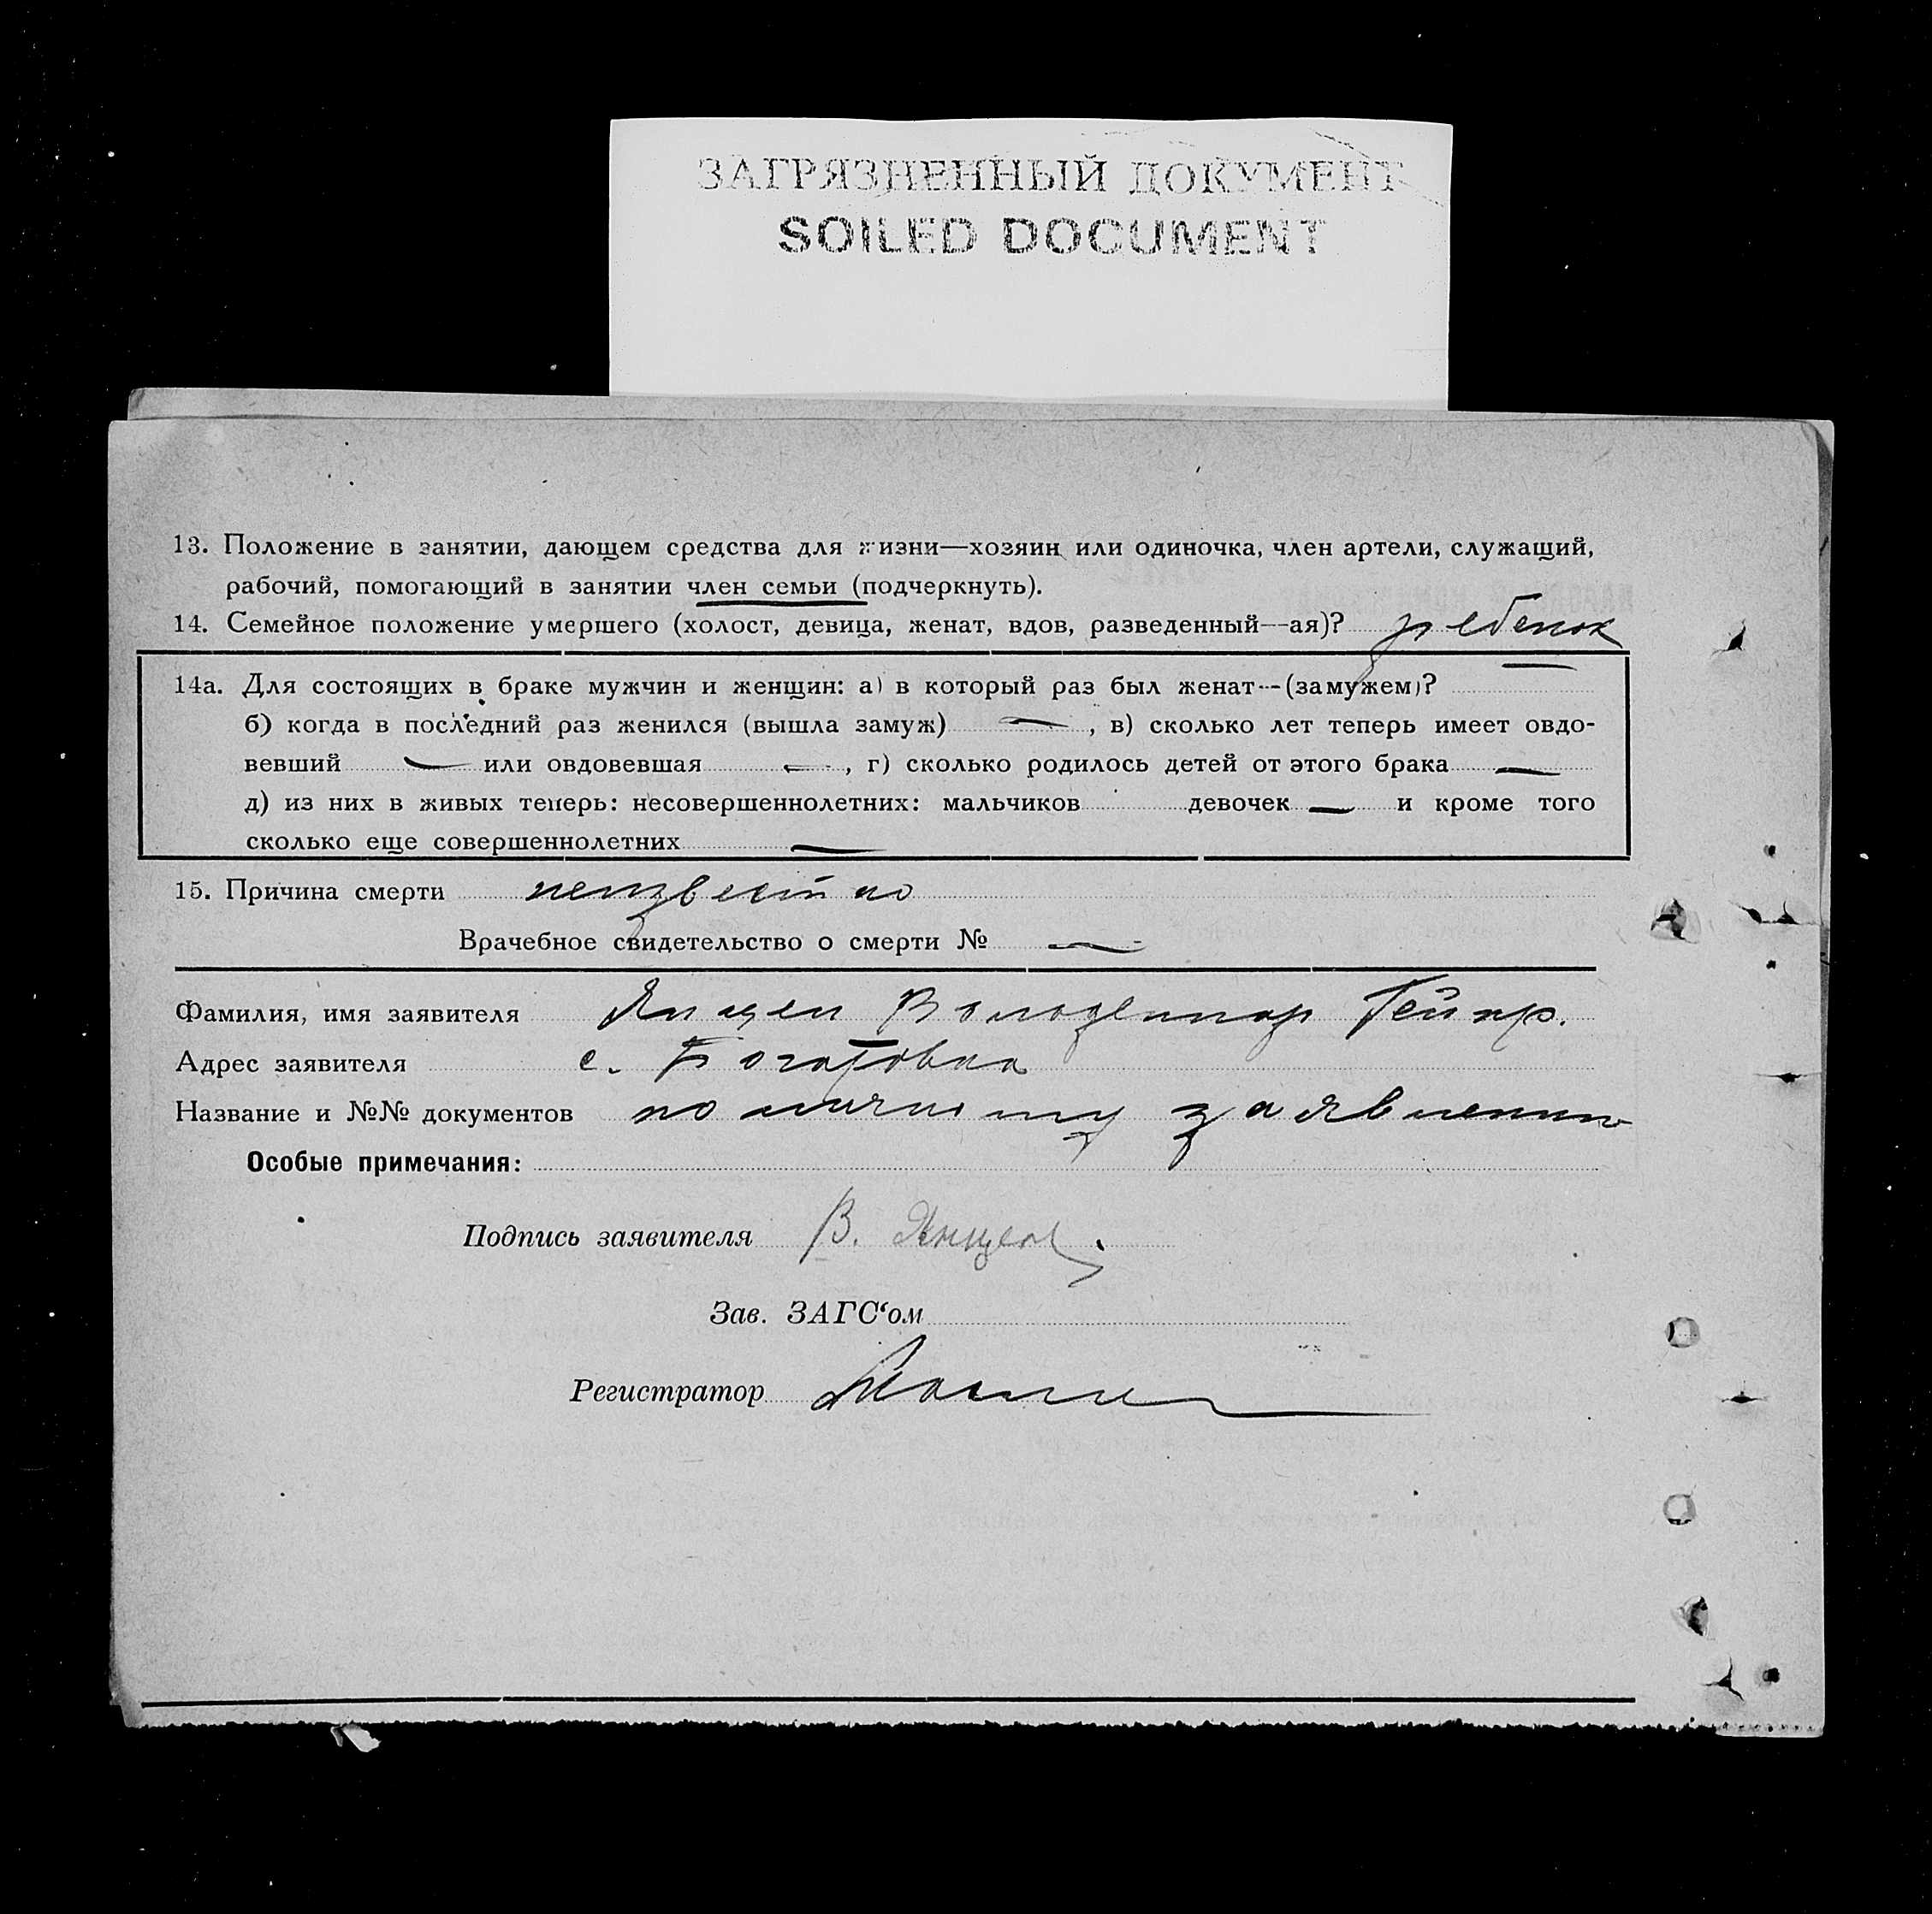 ЗАГРЯЗНЕННЫЙ ДОКУМЕНТ
SOILED DOCUMENT
13. Положение в занятии, дающем средства для жизни—хозяин или одиночка, член артели, служащий,
рабочий, помогающий в занятии член семьи (подчеркнуть).
14. Семейное положение умершего (холост, девица, женат, вдов, разведенный—ая)? ребенок
14а. Для состоящих в браке мужчин и женщин: а) в который раз был женат--(замужем)? —
б) когда в последний раз женился (вышла замуж) — , в) сколько лет теперь имеет овдо-
вевший — или овдовевшая — , г) сколько родилось детей от этого брака —
д) из них в живых теперь: несовершеннолетних: мальчиков девочек — и кроме того
сколько еще совершеннолетних —
15. Причина смерти неизвестно
Врачебное свидетельство о смерти № —
Фамилия, имя заявителя Янцен Гейнр.
Адрес заявителя с. Богатовка
Название и №№ документов по личному заявлению
Особые примечания:
Подпись заявителя В. Янцен
Зав. ЗАГС‘ом
Регистратор